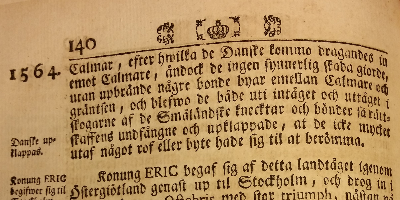 140
1564.
Calmar, efter hwilka de Danske kommo dragandes in
emot Calmare, ändock de ingen synnerlig skada giorde,
utan upbrände någre bonde byar emellan Calmare och
gräntsen, och blefwo de både uti intåget och uttåget i
skogarne af de Småländske knecktar och bönder så rätt-
skaffens undfångne och upklappade, at de icke mycket
utaf något rof eller byte hade sig til at berömma.
Danske up-
klappas.
Konung ERIC begaf sig af detta landtåget igenom
Östergiötland genast up til Stockholm, och drog in
Octobris med stor triumph, nästan på
Konung ERIC
begifwer sig til